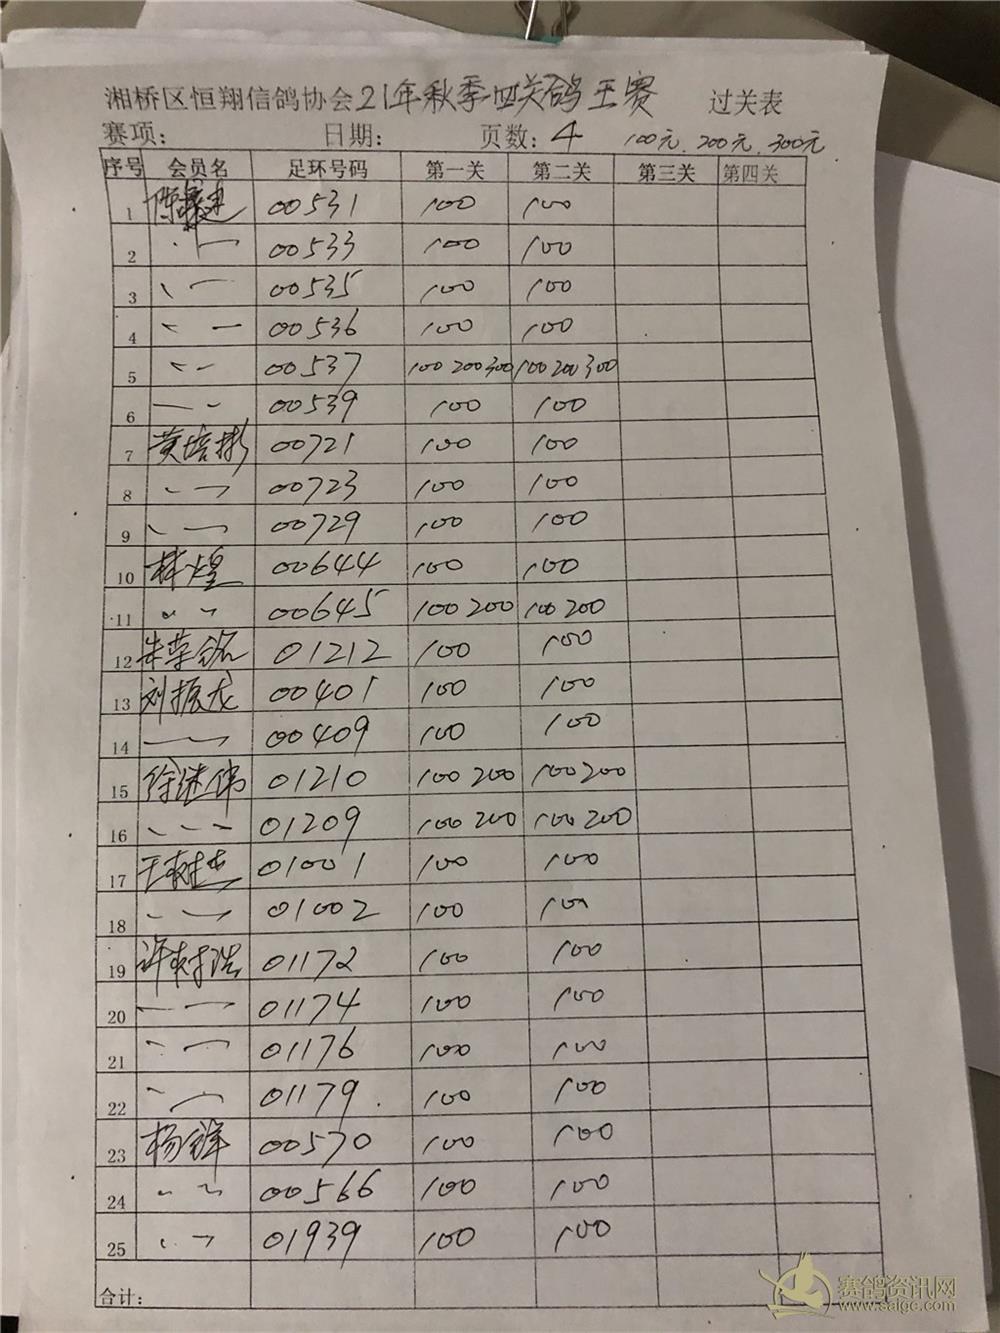 湘桥区恒翔信鸽协会21年秋季四关鸽王赛 过关表
赛项: 日期: 页数: 4 100元.200元.300元
序号 会员名 足环号码 第一关 第二关 第三关 第四关
1 00531 100 100
2 00533 100 100
3 00535 100 100
4 00536 100 100
5 00537 100 200 300 100 200 300
6 00539 100 100
7 黄培彬 00721 100 100
8 00723 100 100
9 00729 100 100
10 林煌 00644 100 100
11 00645 100 200 100 200
12 朱荣铭 01212 100 100
13 刘振龙 00401 100 100
14 00409 100 100
15 徐继伟 01210 100 200 100 200
16 01209 100 200 100 200
17 王树杰 01001 100 100
18 01002 100 100
19 许树浩 01172 100 100
20 01174 100 100
21 01176 100 100
22 01179. 100 100
23 杨锋 00570 100 100
24 00566 100 100
25 01939 100 100
合计:
赛鸽资讯网
www.saigc.com